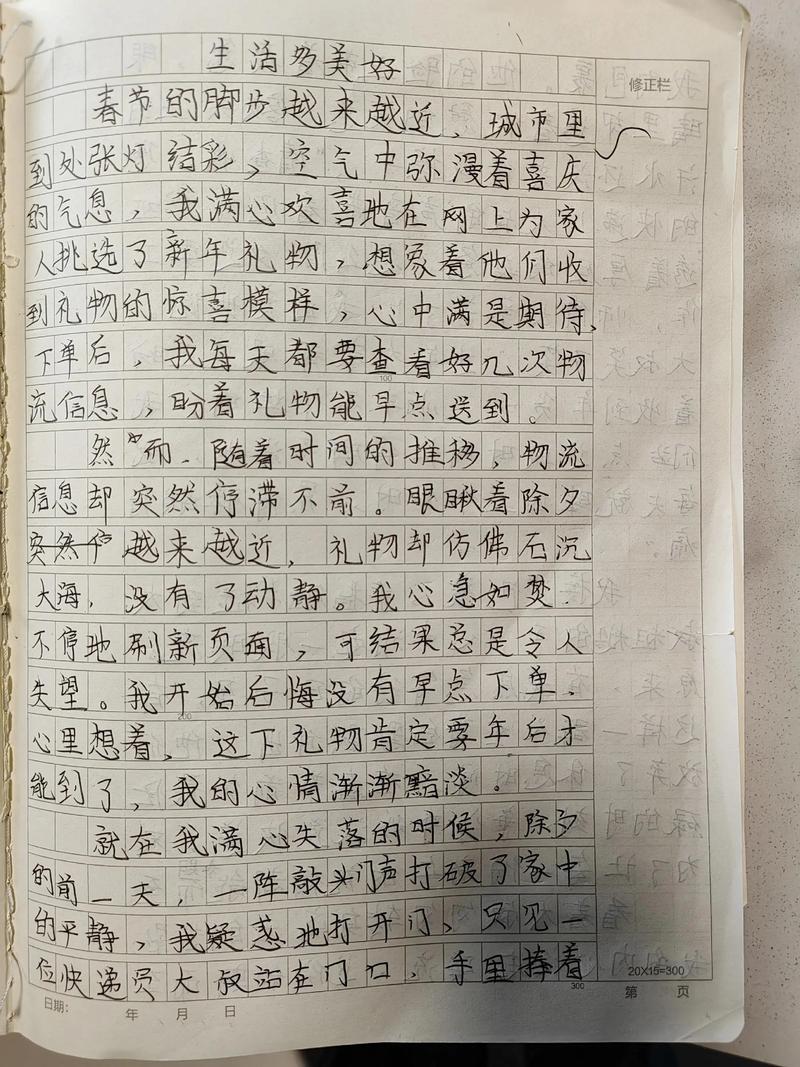 生活多美好
修正栏
春节的脚步越来越近，城市里
到处张灯结彩，空气中弥漫着喜庆
的气息，我满心欢喜地在网上为家
人挑选了新年礼物，想象着他们收
到礼物的惊喜模样，心中满是期待，
下单后，我每天都要查看好几次物
100
流信息，盼着礼物能早点送到。
然而．随着时间的推移，物流
信息却突然停滞不前。眼瞅着除夕
突然停越来越近，礼物却仿佛石沉
大海，没有了动静。我心急如焚．
不停地刷新页面，可结果总是令人
失望。我开始后悔没有早点下单．
200
心里想着，这下礼物肯定要年后才
能到了，我的心情渐渐黯淡。
就在我满心失落的时候，除夕
的前一天，一阵敲头门声打破了家中
的平静，我疑惑地打开门，只见一
位快递员大叔站在门口，手里捧着
20X15=300
300
日期： 年 月 日
第 页